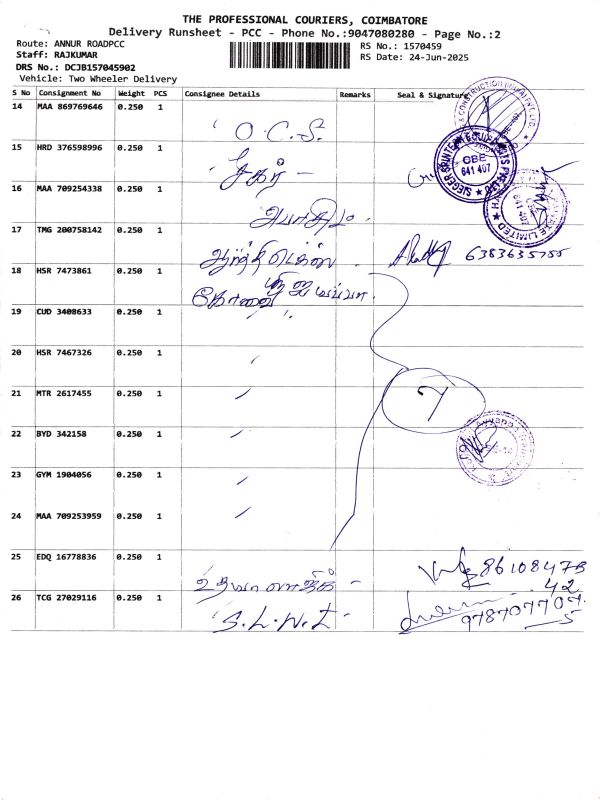 THE PROFESSIONAL COURIERS, COIMBATORE
Delivery Runsheet - PCC - Phone No.:9047080280 - Page No.:2
Route: ANNUR ROADPCC
Staff: RAJKUMAR
DRS No.: DCJB157045902
Vehicle: Two Wheeler Delivery
RS No.: 1570459
RS Date: 24-Jun-2025
S No Consignment No Weight PCS Consignee Details Remarks Seal & Signature
14 MAA 869769646 0.250 1 O.C.S.
15 HRD 376598996 0.250 1
SIEGER SPINTECH EQUIPMENTS PVT LTD
CBE
641 407
16 MAA 709254338 0.250 1
17 TMG 200758142 0.250 1 6383635755
18 HSR 7473861 0.250 1 கோவை
19 CUD 3408633 0.250 1 "
20 HSR 7467326 0.250 1
21 MTR 2617455 0.250 1
7
22 BYD 342158 0.250 1
23 GYM 1904056 0.250 1
24 MAA 709253959 0.250 1
25 EDQ 16778836 0.250 1 86108473
42
26 TCG 27029116 0.250 1 S.L.W.I 978707707
5